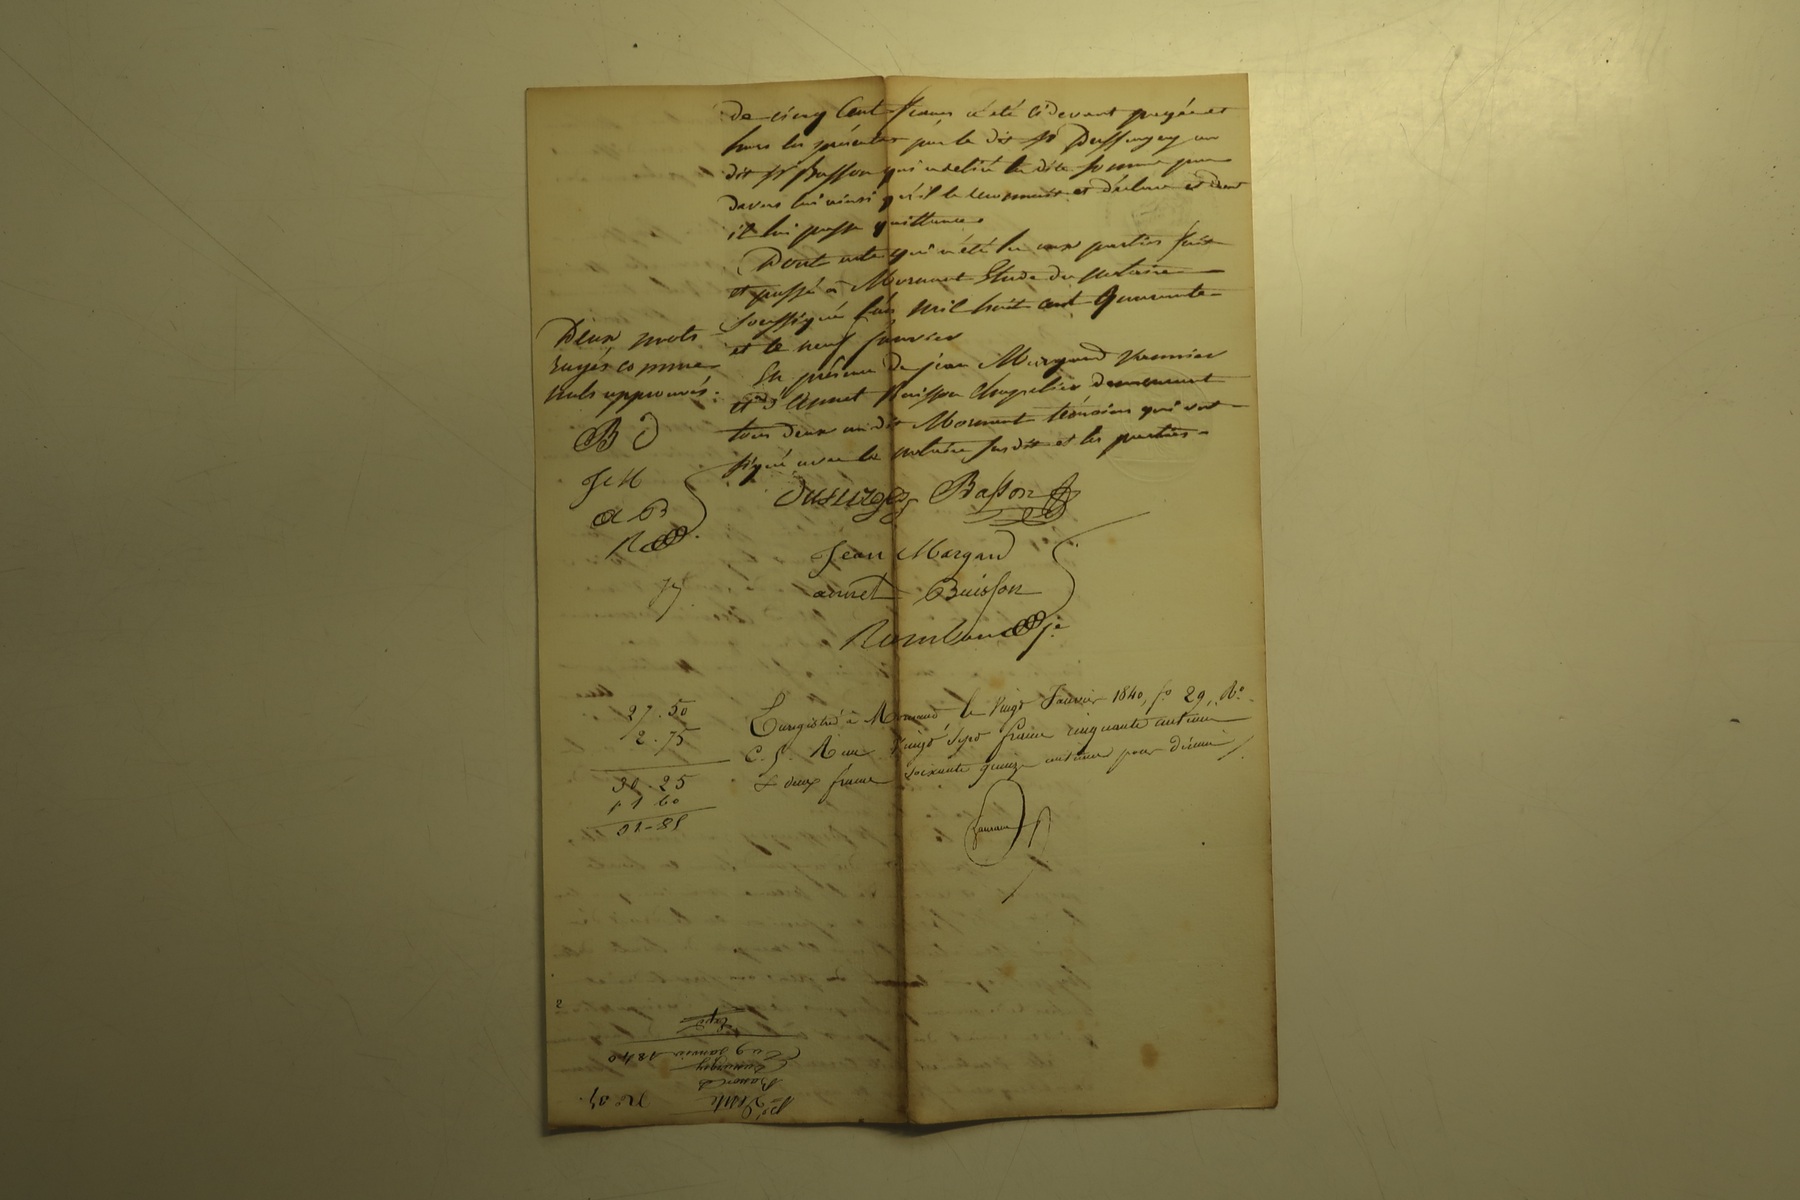 de cinq Cent francs a été cidevant payée et
hors les présentes par le dit sr Dussurgey au
dit sr Basson qui a retiré la dite somme par
davers lui ainsi qu'il le reconnait et déclare et dont
il lui passe quittance.
Dont acte qui a été lu aux parties fait
et passé à Mornant Etude du notaire
soussigné l'an mil huit cent quarante
et le neuf janvier
En présence de jean Margand vannier
et d'Annet Buisson Chapelier demeurant
tous deux au dit Mornant témoins qui ont
signé avec le notaire susdit et les parties.
Deux mots
rayés comme
nuls approuvés.
B D
J M
a B
R
Dusurgey Basson
Jean Margand
annet Buisson
Enregistré à Mornant le vingt Janvier 1840, fo 29, Ro.
C. Reçu vingt sept francs cinquante centimes
& deux francs soixante quinze centimes pour décime
27.50
2.75
30.25
11.60
Vente
Basson à
Dusurgey
Du 9 Janvier 1840
Exp